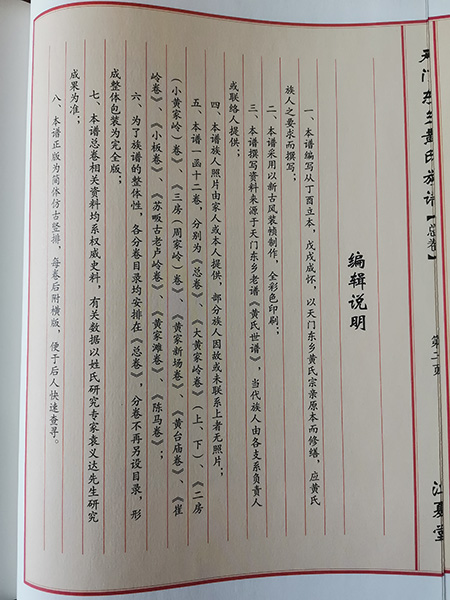 天门东乡黄氏族谱【总卷】
第二页
江夏堂
编辑说明
一、本谱编写从丁酉立本，戊戌成怀，以天门东乡黄氏宗亲原本而修缮，应黄氏
族人之要求而撰写；
二、本谱采用以新古风装帧制作，全彩色印刷；
三、本谱撰写资料来源于天门东乡老谱《黄氏世谱》，当代族人由各支系负责人
或联络人提供；
四、本谱族人照片由家人或本人提供，部分族人因故或未联系上者无照片；
五、本谱一函十二卷，分别为《总卷》、《大黄家岭卷》（上、下）、《二房
（小黄家岭）卷》、《三房（周家岭）卷》、《黄家新场卷》、《黄台庙卷》、《崔
岭卷》、《小板卷》、《苏畈古老卢岭卷》、《黄家滩卷》、《陈马卷》；
六、为了族谱的整体性，各分卷目录均安排在《总卷》，分卷不再另设目录，形
成整体包装为完全版；
七、本谱总卷相关资料均系权威史料，有关数据以姓氏研究专家袁义达先生研究
成果为准；
八、本谱正版为简体仿古竖排，每卷后附横版，便于后人快速查寻。